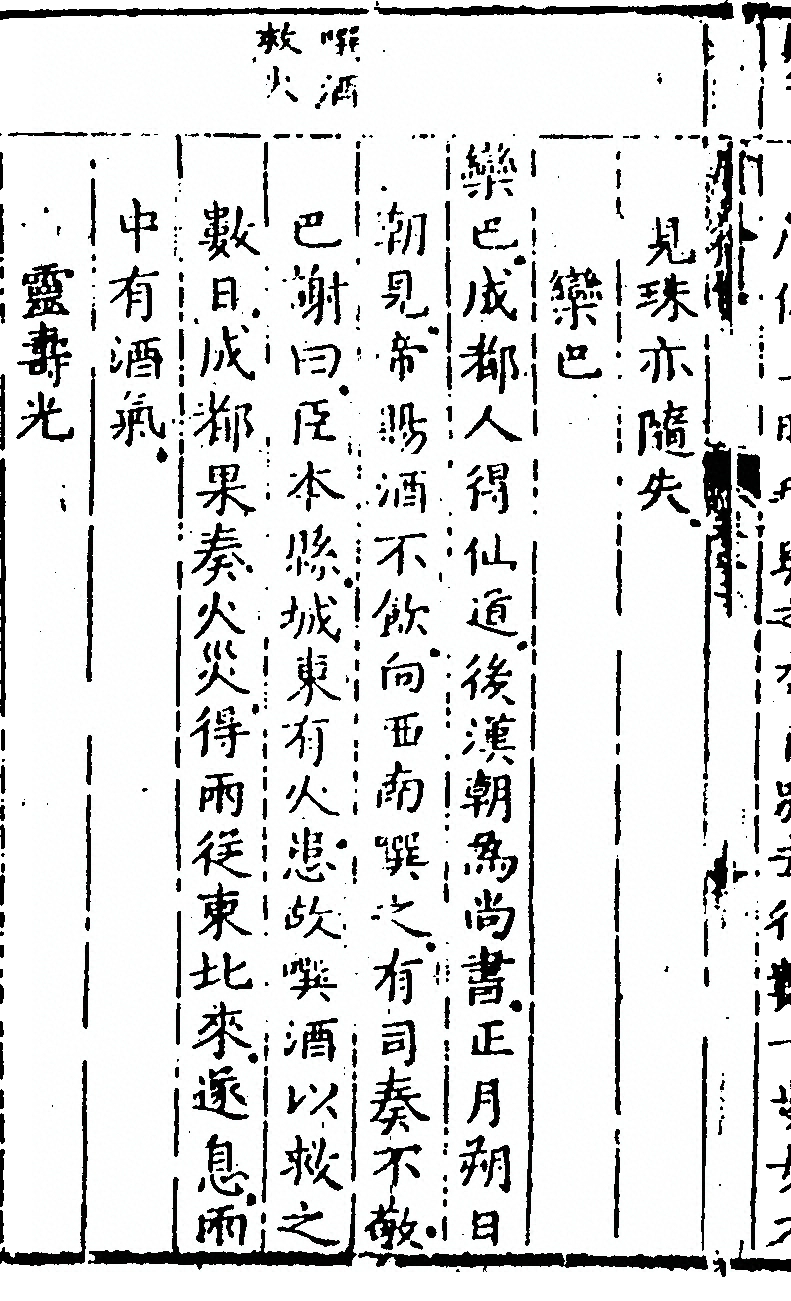 噀酒
救火
見珠亦隨失
欒巴
欒巴成都人得仙道後漢朝為尚書正月朔日
朝見帝賜酒不飲向西南噀之有司奏不敬
巴謝曰臣本縣城東有火患故噀酒以救之
數日成都果奏火災得雨從東北來遂息雨
中有酒氣
靈壽光